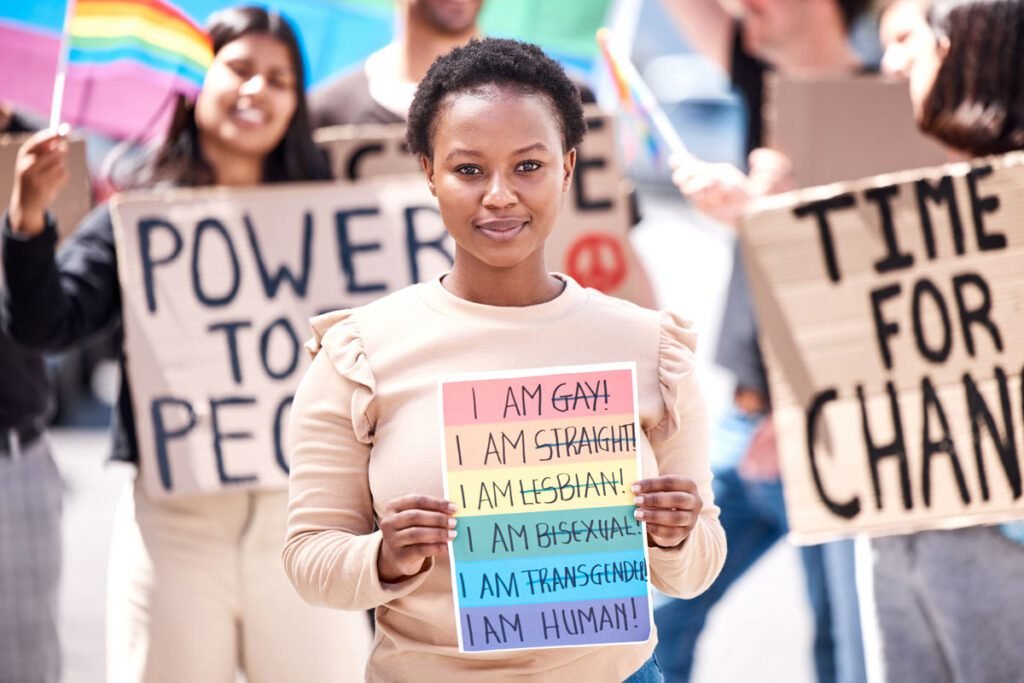 POWER
TO
PE
I AM GAY!
I AM STRAIGHT!
I AM LESBIAN!
I AM BISEXUAL!
I AM TRANSGENDER!
I AM HUMAN!
TIME
FOR
CHAN